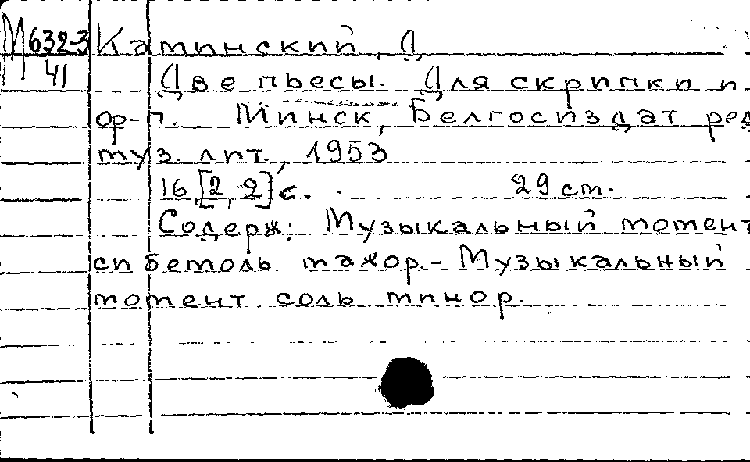 М 632-3 Каминский, Д
41 Две пьесы. Для скрипки и
ор-п. Минск, Белгосиздат ред
муз. лит., 1953
16, [2, 2] с. 29 cm.
Содерж: Музыкальный момент
си бемоль мажор. - Музыкальный
момент соль минор.